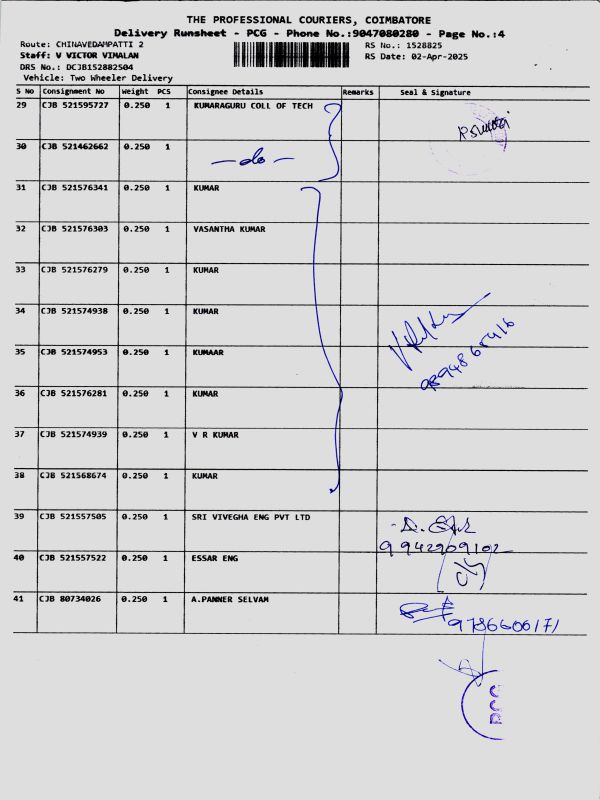 THE PROFESSIONAL COURIERS, COIMBATORE
Delivery Runsheet - PCG - Phone No.:9047080280 - Page No.:4
Route: CHINAVEDAMPATTI 2 RS No.: 1528825
Staff: V VICTOR VIMALAN RS Date: 02-Apr-2025
DRS No.: DCJB152882504
Vehicle: Two Wheeler Delivery
S No Consignment No Weight PCS Consignee Details Remarks Seal & Signature
29 CJB 521595727 0.250 1 KUMARAGURU COLL OF TECH
30 CJB 521462662 0.250 1 -do-
31 CJB 521576341 0.250 1 KUMAR
32 CJB 521576303 0.250 1 VASANTHA KUMAR
33 CJB 521576279 0.250 1 KUMAR
34 CJB 521574938 0.250 1 KUMAR
35 CJB 521574953 0.250 1 KUMAAR
36 CJB 521576281 0.250 1 KUMAR
37 CJB 521574939 0.250 1 V R KUMAR
38 CJB 521568674 0.250 1 KUMAR
39 CJB 521557505 0.250 1 SRI VIVEGHA ENG PVT LTD
9942909102
40 CJB 521557522 0.250 1 ESSAR ENG
41 CJB 80734026 0.250 1 A.PANNER SELVAM
9786606171